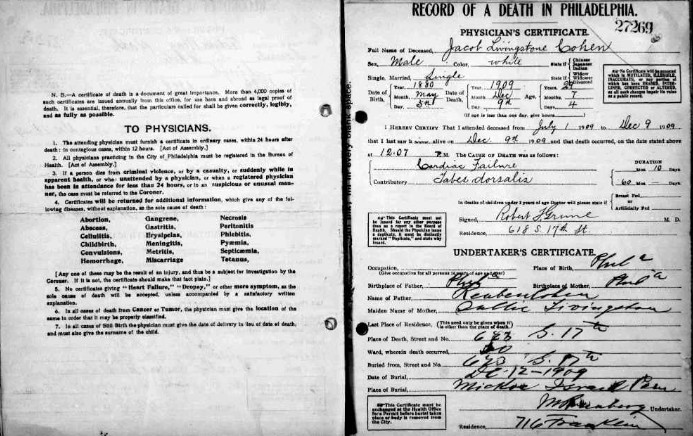 N. B.—A certificate of death is a document of great importance. More than 4,000 copies
of such certificates are issued annually from this office, for use here and abroad as legal proof of
death. It is essential, therefore, that the particulars called for shall be given correctly, legibly,
and as fully as possible.
TO PHYSICIANS.
1. The attending physician must furnish a certificate to ordinary cases, within 24 hours after
death: in contagious cases, within 12 hours. [Act of Assembly.]
2. All physicians practicing in the City of Philadelphia must be registered in the Bureau of
Health. [Act of Assembly.]
3. If a person dies from criminal violence, or by a casualty, or suddenly while in
apparent health, or who unattended by a physician, or when a registered physician
has been in attendance for less than 24 hours, or in an suspicious or unusual man-
ner, the case must be referred to the Coroner.
4. Certificates will be returned for additional information, which give any of the
following diseases, without explanation, as the sole cause of death:
Abortion, Gangrene, Necrosis
Abscess, Gastritis, Peritonitis
Cellulitis, Erysipelas, Phlebitis,
Childbirth, Meningitis, Pyæmia,
Convulsions, Metritis, Septicæmia,
Hemorrhage, Miscarriage, Tetanus,
[Any one of these may be the result of an injury, and thus be a subject for investigation by the
Coroner. If it is not, the certificate should make that fact plain.]
5. No certificates giving "Heart Failure," "Dropsy," or other mere symptom, as the
sole cause of death will be accepted, unless accompanied by a satisfactory written
explanation.
6. In all cases of death from Cancer or Tumor, the physician must give the location of the
same in order that it may be properly classified.
7. In all cases of Still Birth the physician must give the date of delivery in lieu of date of death,
and must also give the surname of the child.
RECORD OF A DEATH IN PHILADELPHIA.
PHYSICIAN'S CERTIFICATE.
27269
Full Name of Deceased, Jacob Livingstone Cohen
Sex, Male Color, white State if Chinese Japanese Indian
Single, Married, Single State if Widow Widower
Date of Birth, Year 1880 Month May Day 5th
Date of Death, Year 1909 Month Dec Day 9th
Age, 29 Month 7 Day 4
(If age is less than one day, give hours)
I HEREBY CERTIFY that I attended deceased from July 1 1909 to Dec 9 1909
that I last saw alive on Dec 9th 1909 and that death occurred, on the date stated above
at 12.07 P.M. THE CAUSE OF DEATH was as follows: DURATION
Cardiac Failure 10 Days
Contributory Tabes dorsalis 60 Mos Days
In deaths of children under 2 years of age Doctor will please state if Breast Fed, or Artificially Fed
Signed, Robert M. D.
Residence, 618 S. 17th St.
This Certificate must not be issued for any other purpose than as a report to the Board of Health.
UNDERTAKER'S CERTIFICATE.
Occupation, Place of Birth, Phila
(Give occupation for all persons)
Birthplace of Father, Phila Birthplace of Mother, Phila
Name of Father, Reuben Cohen
Maiden Name of Mother, Sallie Livingston
Last Place of Residence, (This need only be given when it is other than the place of death.)
Place of Death, Street and No. 623 S. 17th
Ward, wherein death occurred, 30
Buried from, Street and No. 623 S. 17th
Date of Burial, Dec-12-1909
Place of Burial, Mickve Israel
This Certificate must be exchanged at the Health Office for a Permit before burial takes place or body is removed from the City.
Undertaker.
Residence, 716 Franklin